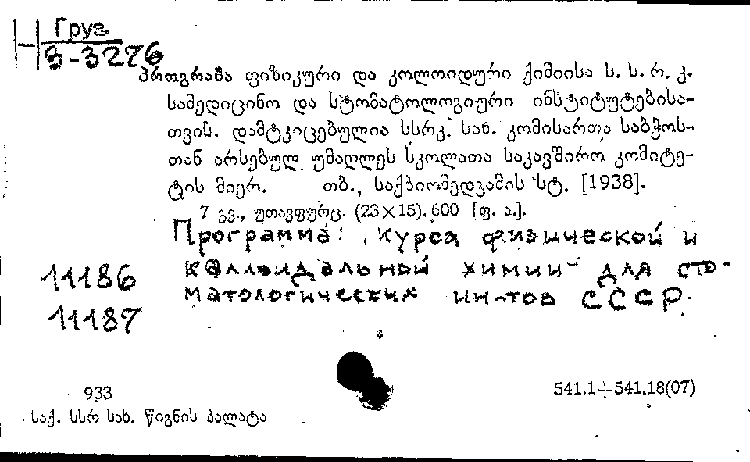 Груз.
3-3276
პროგრამა ფიზიკური და კოლოიდური ქიმიისა ს. ს. რ. კ.
სამედიცინო და სტომატოლოგიური ინსტიტუტებისა-
თვის. დამტკიცებულია სსრკ. სახ. კომისართა საბჭოს-
თან არსებულ უმაღლეს სკოლათა საკავშირო კომიტე-
ტის მიერ. თბ., საქბიომედგამის სტ. [1938].
7 გვ., უთავფურც. (23×15). 600 [ფ. ა.].
Программа: курса физической и
коллоидальной химии для сто-
матологических ин-тов СССР.
11186
11187
933
541.1+541.18(07)
საქ. სსრ სახ. წიგნის პალატა